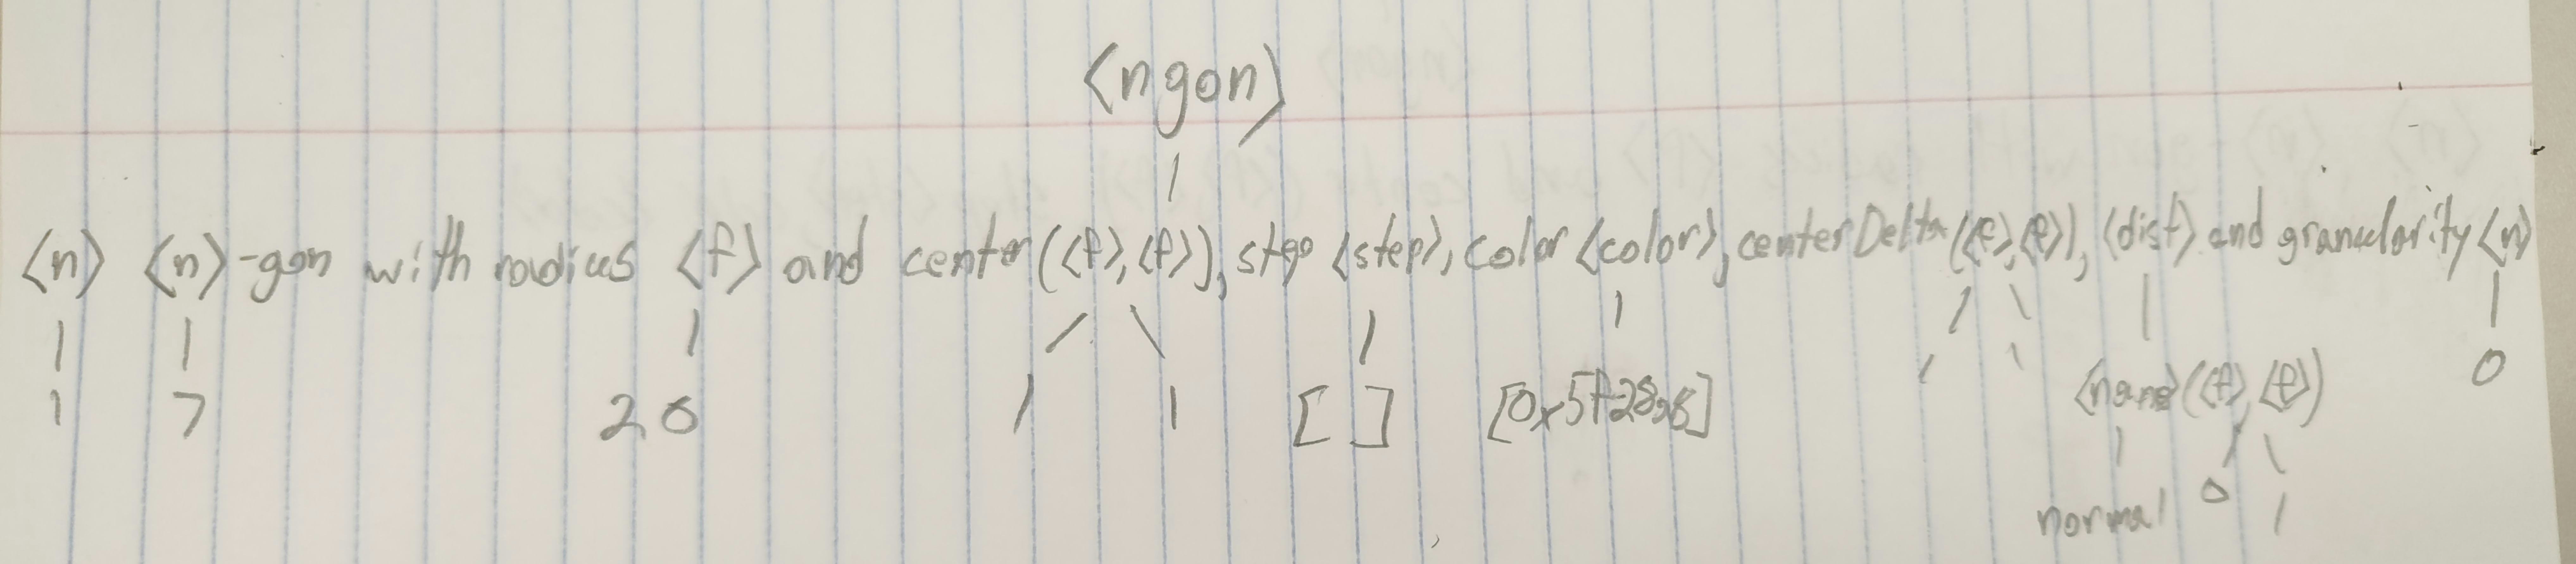 <ngon>
<n> <n>-gon with radius <f> and center (<f>,<f>), step <step>, color <color>, centerDelta (<f>,<f>), <dist> and granularity <n>
1 7 20 1 1 [ ] 1 1 <name>(<f>,<f>) 0
normal 0 1